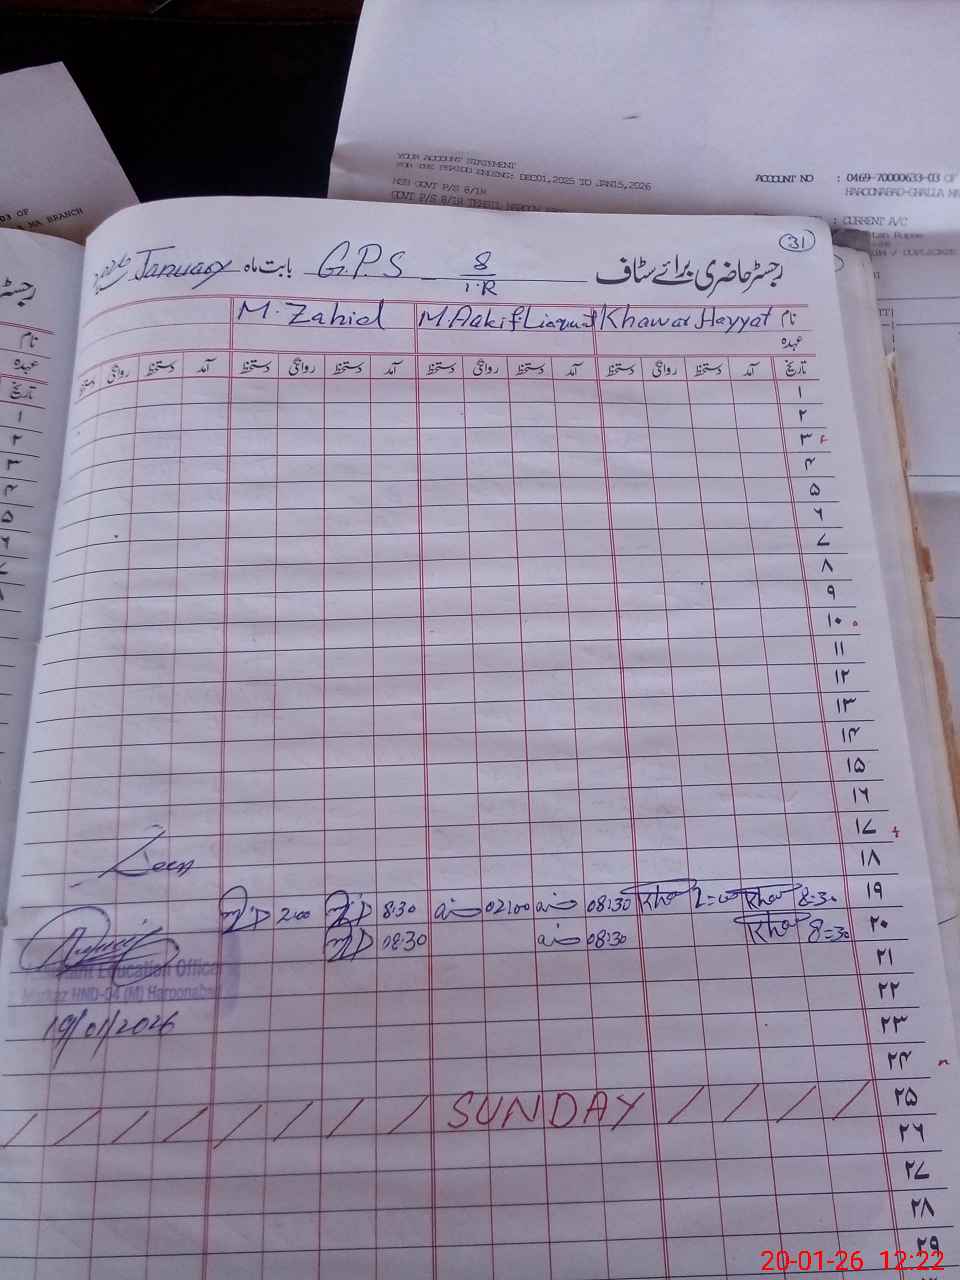 YOUR ACCOUNT STATEMENT
FOR THE PERIOD ENDING: DEC01,2025 TO JAN15,2026
ACCOUNT NO : 0469-70000633-03 OF
NSB GOVT P/S 8/1R
HAROONABAD-GHALLA MA
GOVT P/S 8/1R TEHSIL HAROON
: CURRENT A/C
MA BRANCH
31
رجسٹر حاضری برائے سٹاف G.P.S 8/1.R بابت ماہ January 2026
نام Khawar Hayyat M Aakif Liaquat M. Zahid
عہدہ
تاریخ آمد دستخط روانگی دستخط آمد دستخط روانگی دستخط آمد دستخط روانگی دستخط آمد دستخط روانگی دستخط
۱
۲
۳
۴
۵
۶
۷
۸
۹
۱۰
۱۱
۱۲
۱۳
۱۴
۱۵
۱۶
۱۷
۱۸
Seen
۱۹ 8:30 2:00 08:30 02:00 8:30 2:00
۲۰ 8:30 08:30 08:30
۲۱
Assistant Education Officer
۲۲
Markaz HND-04 (M) Haroonabad
۲۳
19/01/2026
۲۴
۲۵ SUNDAY
۲۶
۲۷
۲۸
۲۹
20-01-26 12:22